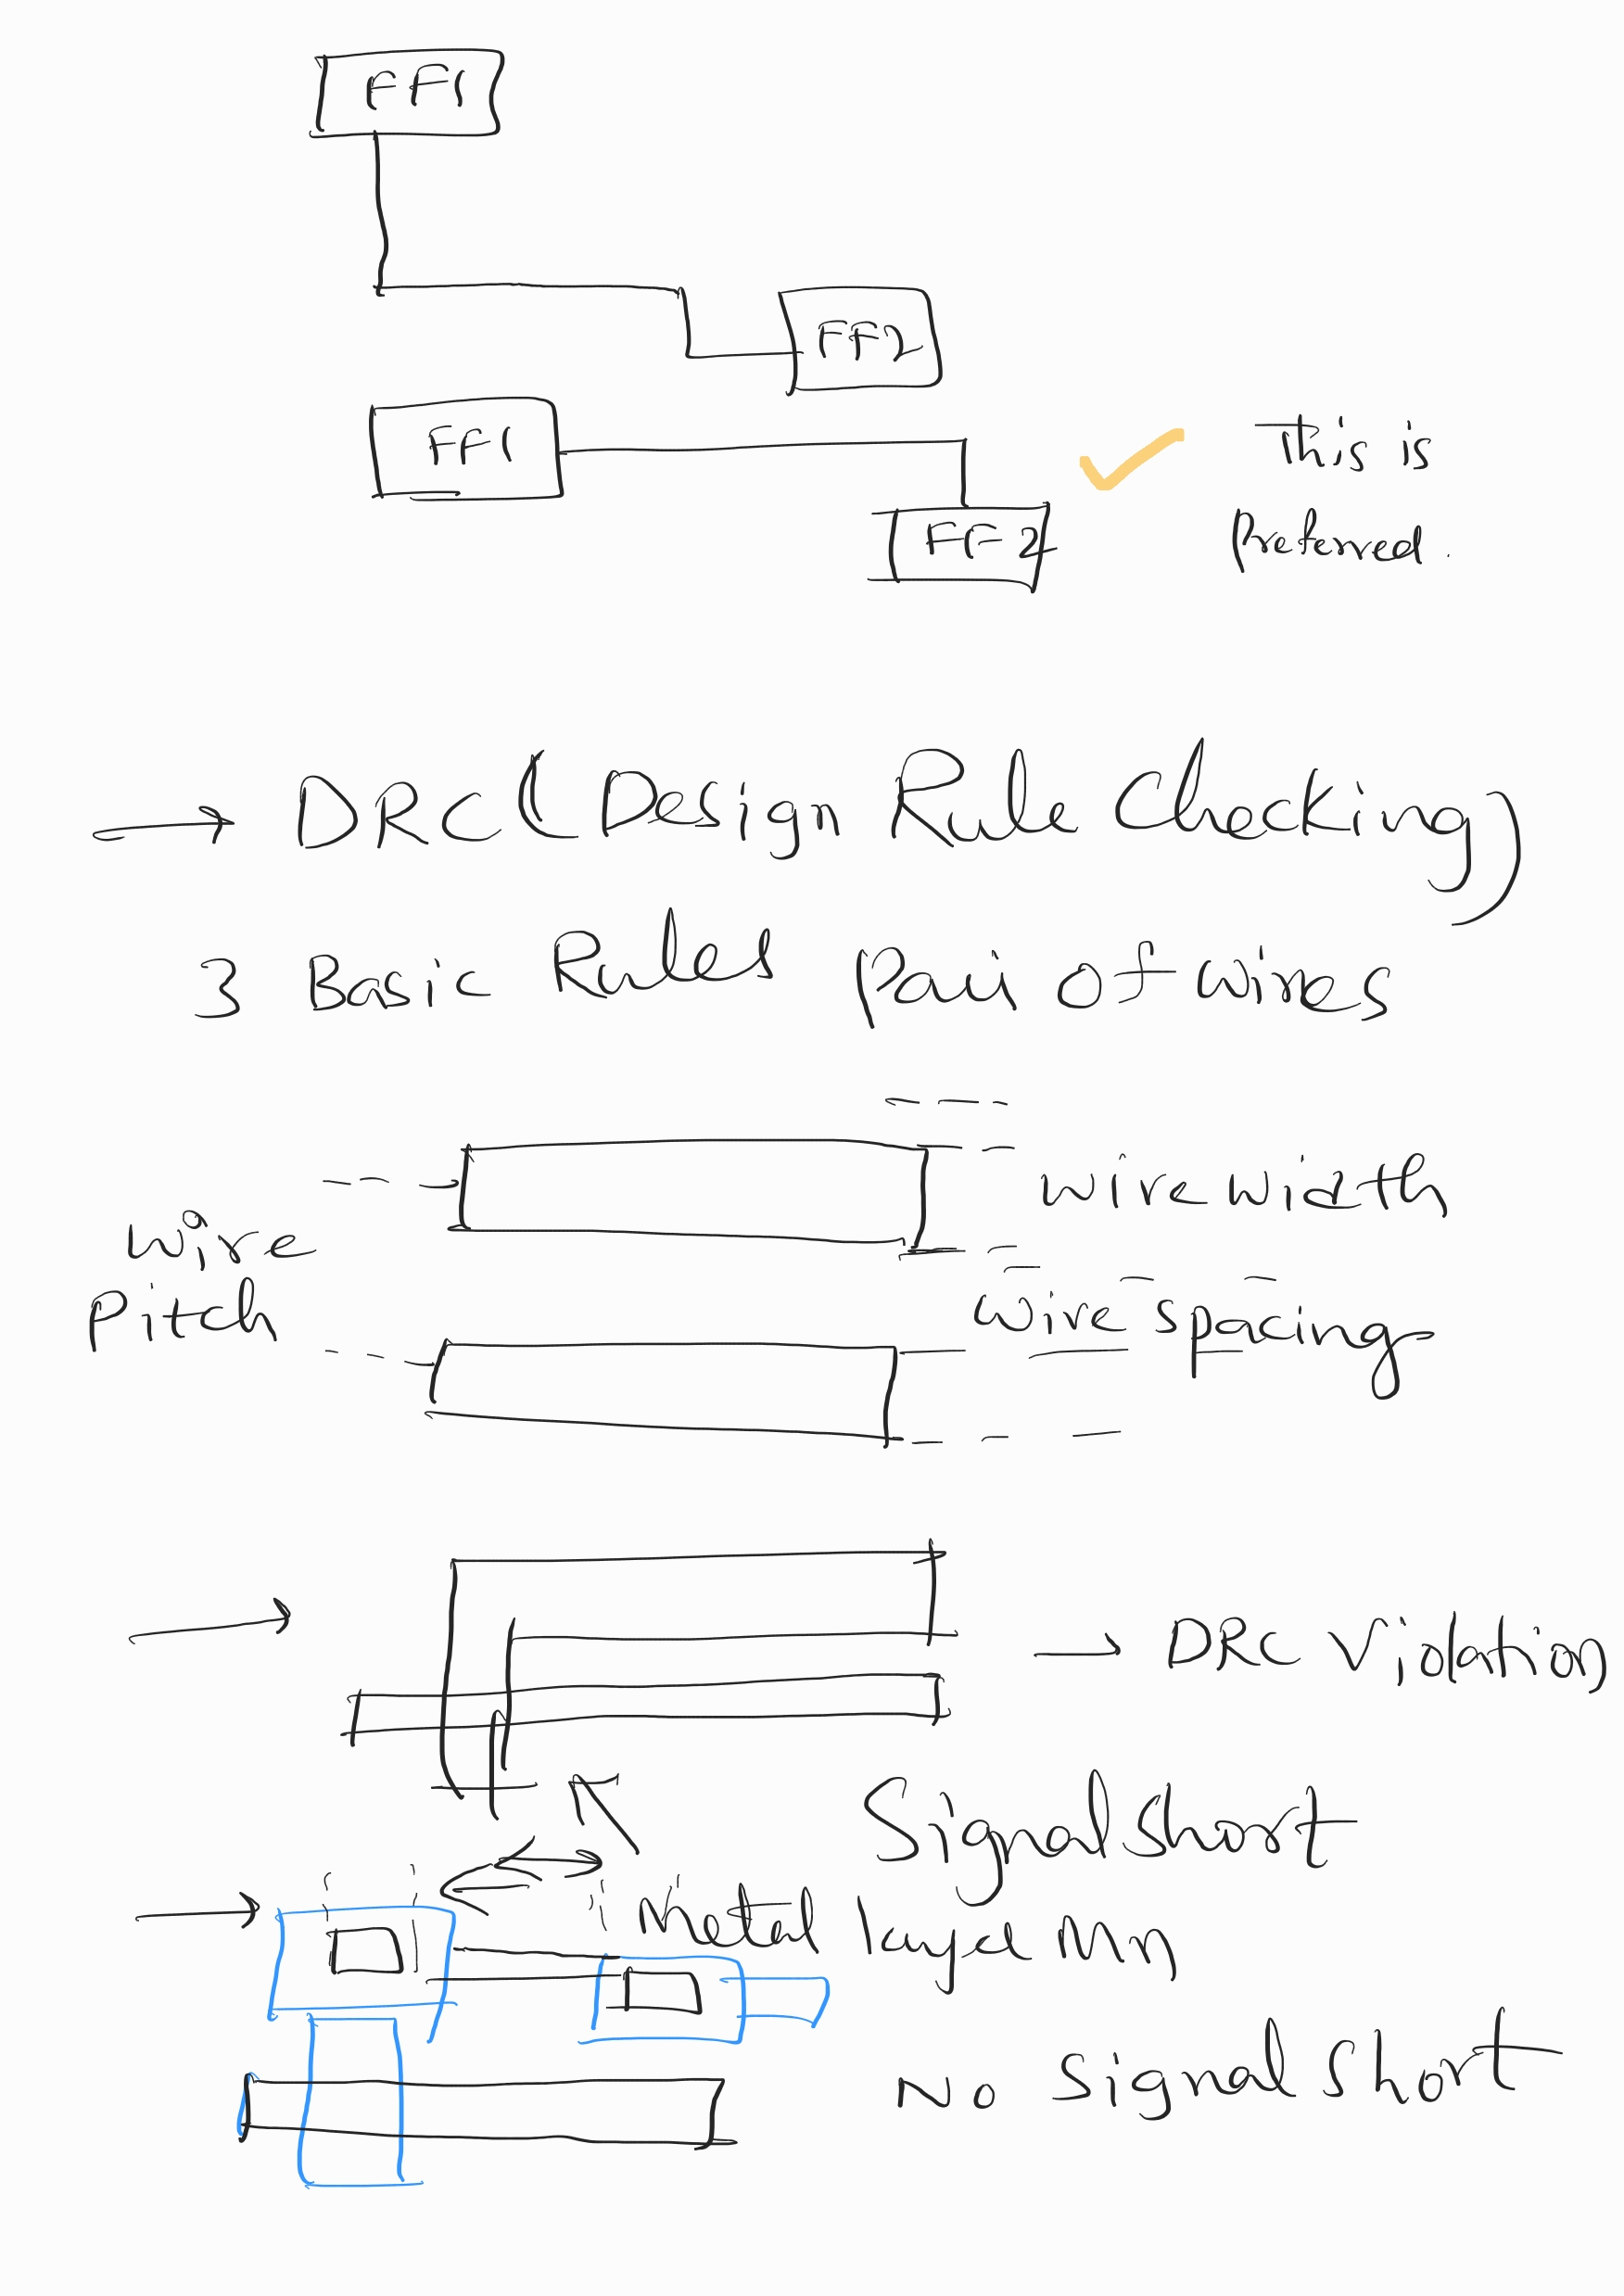 FF1
FF2
FF1
This is
FF2
Preferred.
→ DRC (Design Rule Checking)
3 Basic Rules Pair of wires
wire width
wire
Pitch
wire spacing
→ DRC Violation
Signal Short
Metal layer Mn
No Signal Short